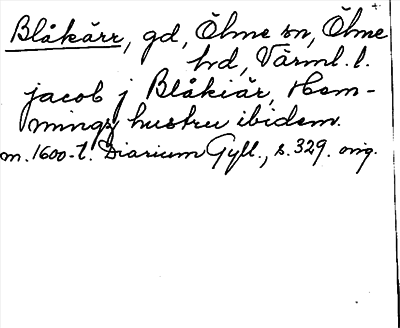 Blåkärr, gd, Ölme sn, Ölme
hd, Värml. l.
jacob j Blåkiär, Hem-
mings hustru ibidem.
m. 1600-t. Diarium Gyll., s. 329. orig.